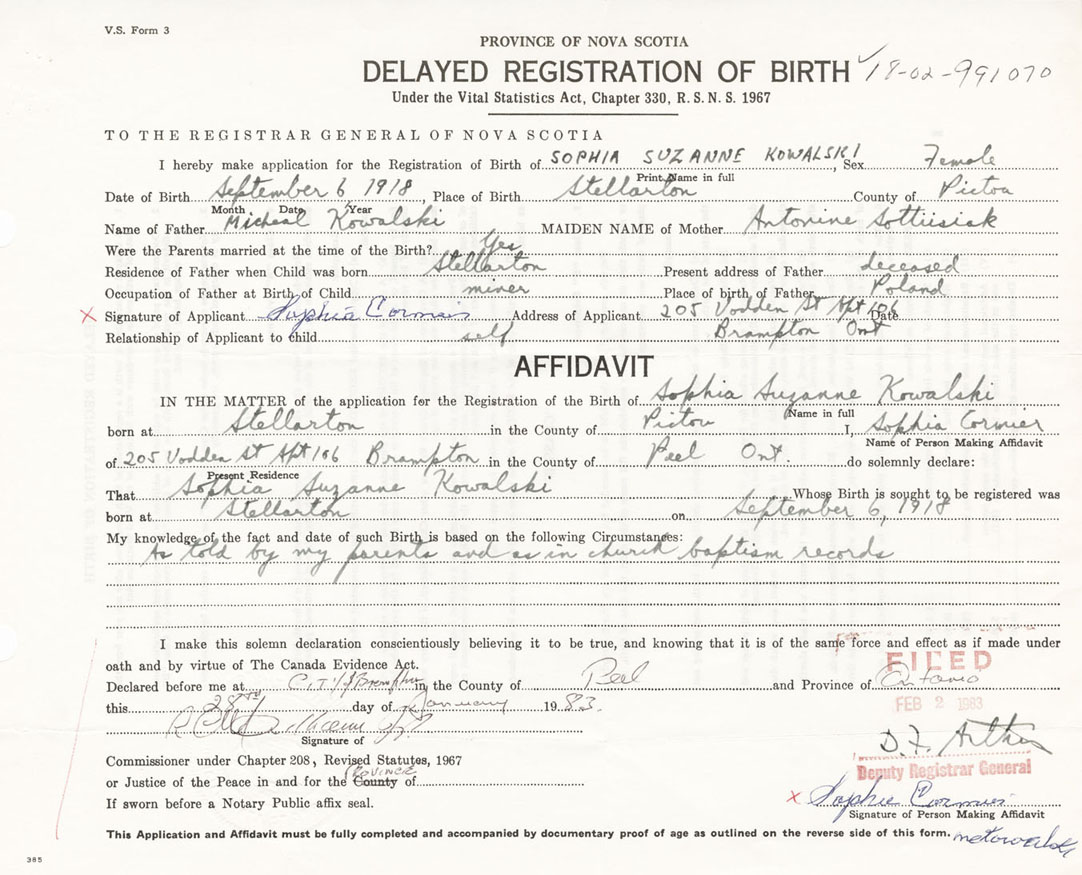 V.S. Form 3
PROVINCE OF NOVA SCOTIA
DELAYED REGISTRATION OF BIRTH 18-02-991070
Under the Vital Statistics Act, Chapter 330, R. S. N. S. 1967
TO THE REGISTRAR GENERAL OF NOVA SCOTIA
I hereby make application for the Registration of Birth of SOPHIA SUZANNE KOWALSKI, Sex Female
Print Name in full
Date of Birth September 6 1918, Place of Birth Stellarton County of Pictou
Month Date Year
Name of Father Micheal Kowalski MAIDEN NAME of Mother Antonine Sottiisiak
Were the Parents married at the time of the Birth? Yes
Residence of Father when Child was born Stellarton Present address of Father deceased
Occupation of Father at Birth of Child miner Place of birth of Father Poland
X Signature of Applicant Sophia Cormier Address of Applicant 205 Vodden St Apt 106 Date
Relationship of Applicant to child self Brampton Ont
AFFIDAVIT
IN THE MATTER of the application for the Registration of the Birth of Sophia Suzanne Kowalski
Name in full
born at Stellarton in the County of Pictou I, Sophia Cormier
Name of Person Making Affidavit
of 205 Vodden St Apt 106 Brampton in the County of Peel Ont. do solemnly declare:
Present Residence
That Sophia Suzanne Kowalski Whose Birth is sought to be registered was
born at Stellarton on September 6, 1918
My knowledge of the fact and date of such Birth is based on the following Circumstances:
As told by my parents and as in church baptism records
I make this solemn declaration conscientiously believing it to be true, and knowing that it is of the same force and effect as if made under
oath and by virtue of The Canada Evidence Act.
FILED
Declared before me at City of Brampton in the County of Peel and Province of Ontario
this 28th day of January 1983.
FEB 2 1983
Signature of
D. F. Arthur
Commissioner under Chapter 208, Revised Statutes, 1967
Deputy Registrar General
PROVINCE
or Justice of the Peace in and for the County of
X Sophie Cormier
If sworn before a Notary Public affix seal.
Signature of Person Making Affidavit
This Application and Affidavit must be fully completed and accompanied by documentary proof of age as outlined on the reverse side of this form.
385